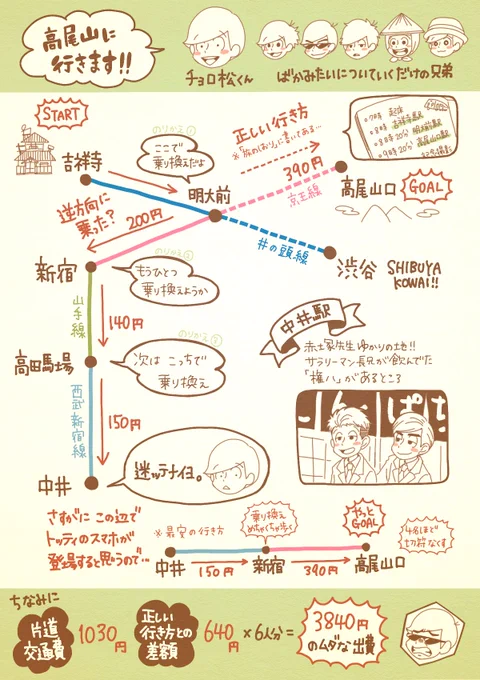 高尾山に
行きます!!
チョロ松くん
ばかみたいについていくだけの兄弟
START
吉祥寺
のりかえ①
ここで
乗り換えだよ
明大前
正しい行き方
※「旅のしおり」に書いてある…
390円
京王線
●7時 起床
●8時 吉祥寺駅
●8時20分 明大前駅
高尾山口
GOAL
逆方向に
乗った?
200円
井の頭線
渋谷
SHIBUYA
KOWAI!!
新宿
のりかえ②
もうひとつ
乗り換えようか
山手線
140円
高田馬場
のりかえ③
次は こっちで
乗り換え
西武新宿線
150円
中井
迷ッテナイヨ。
中井駅
赤土家先生ゆかりの地!!
サラリーマン長兄が飲んでた
「権八」があるところ
さすがに この辺で
トッティのスマホが
登場すると思うので…
※最安の行き方
中井
150円
乗り換え
めちゃくちゃ歩く
新宿
390円
やっと
GOAL
高尾山口
4名ほど
切符なくす
ちなみに
片道
交通費
1030円
正しい
行き方との
差額
640円
×6人分=
3840円
のムダな出費